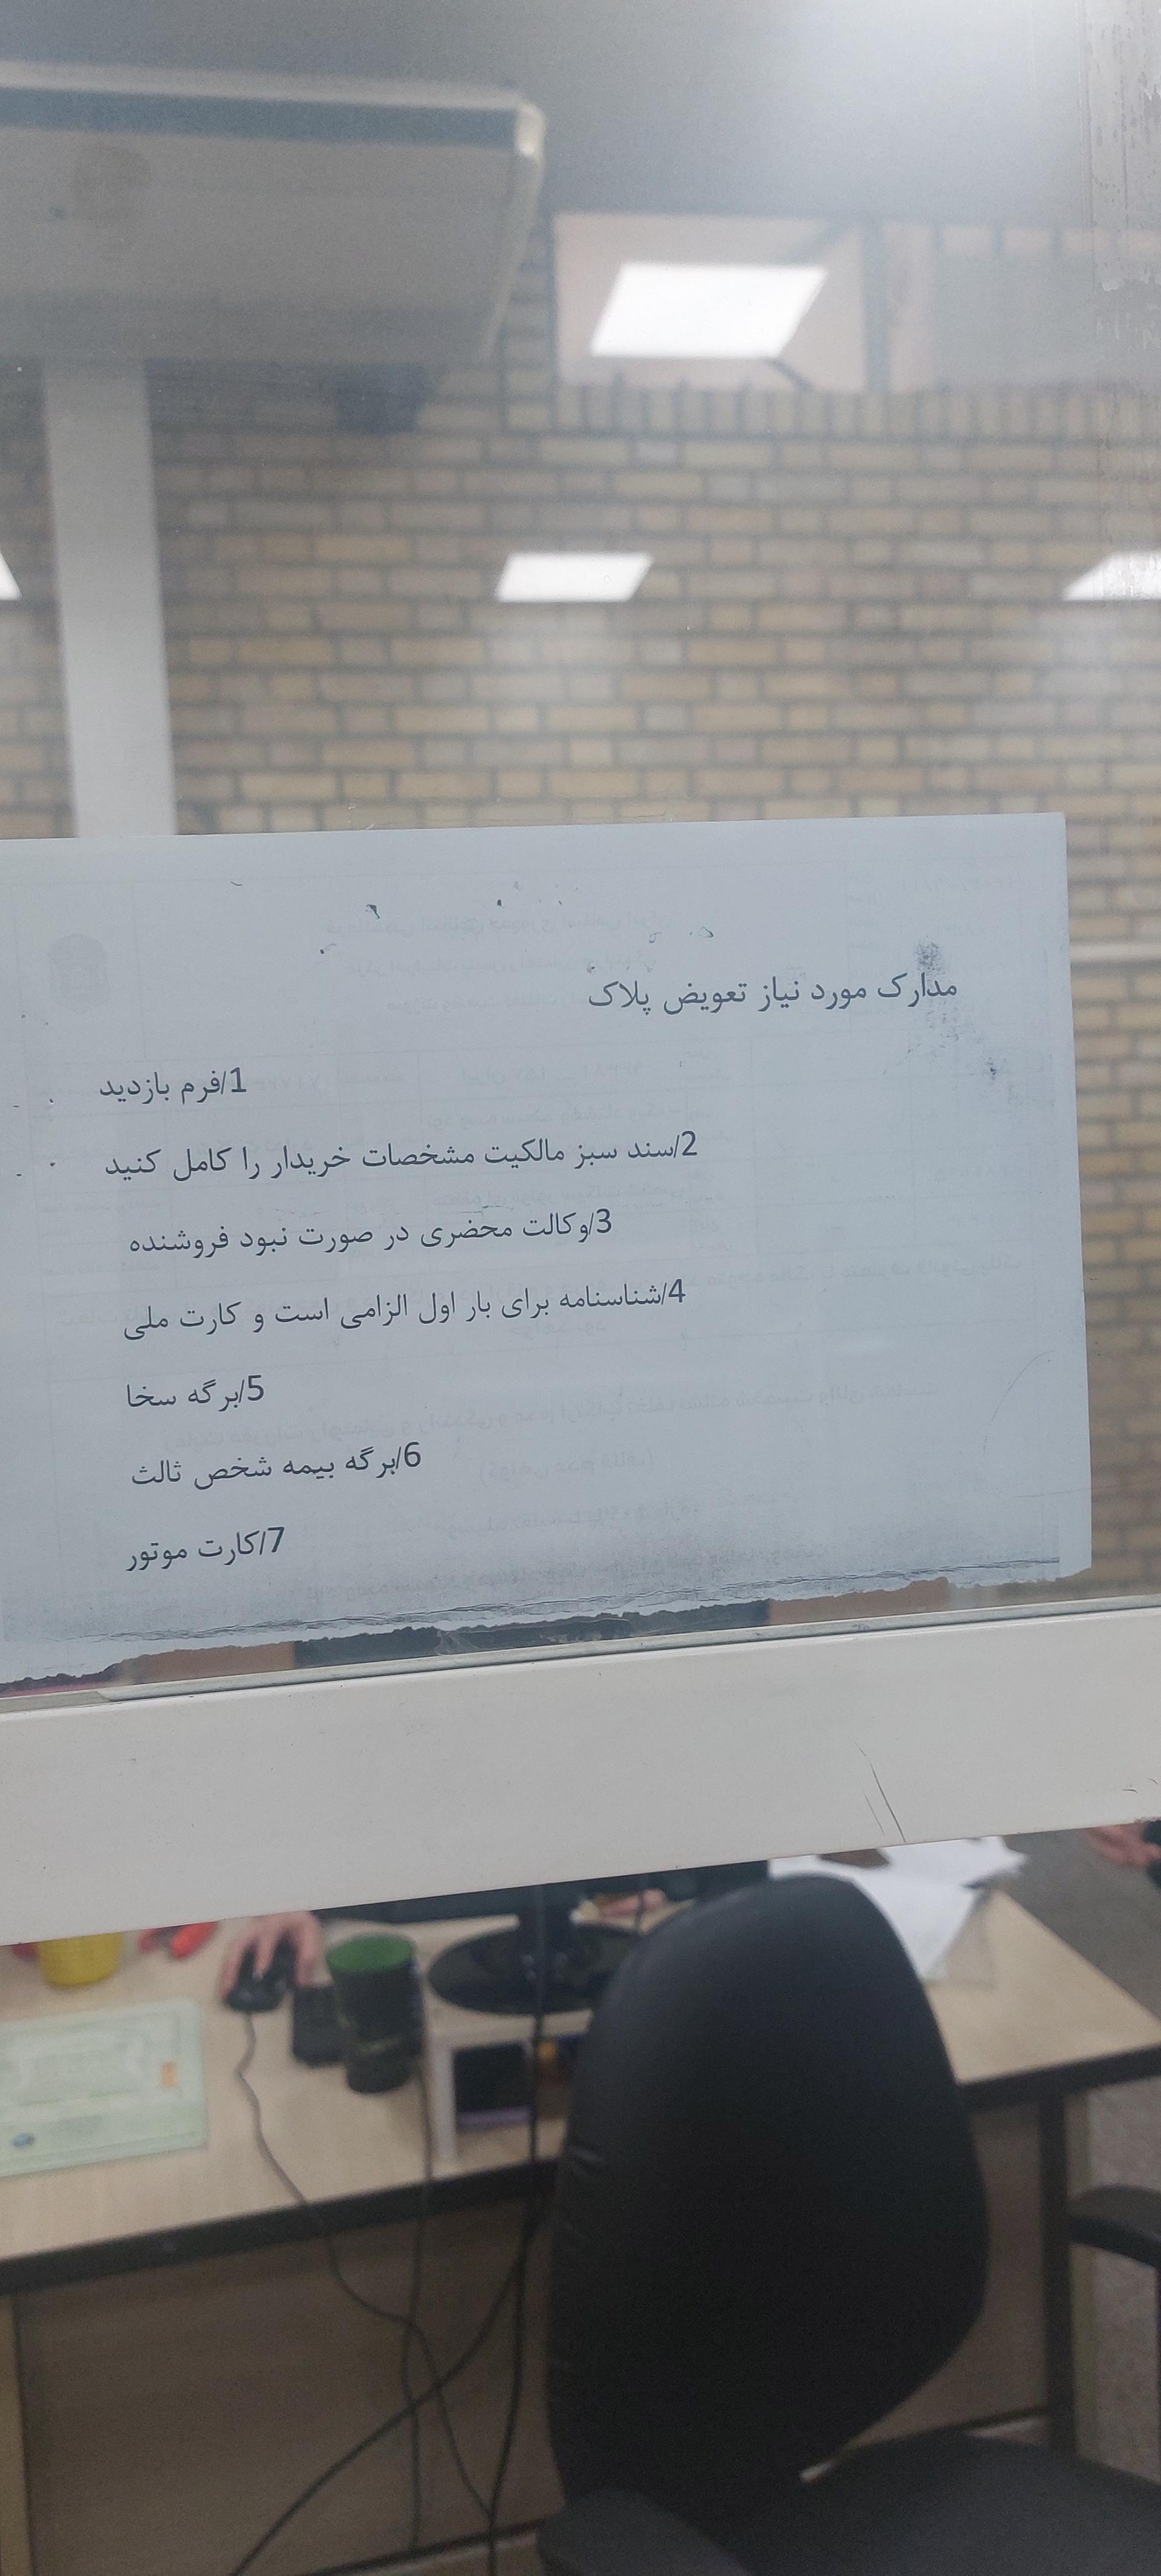 مدارک مورد نیاز تعویض پلاک
1/فرم بازدید
2/سند سبز مالکیت مشخصات خریدار را کامل کنید
3/وکالت محضری در صورت نبود فروشنده
4/شناسنامه برای بار اول الزامی است و کارت ملی
5/برگه سخا
6/برگه بیمه شخص ثالث
7/کارت موتور